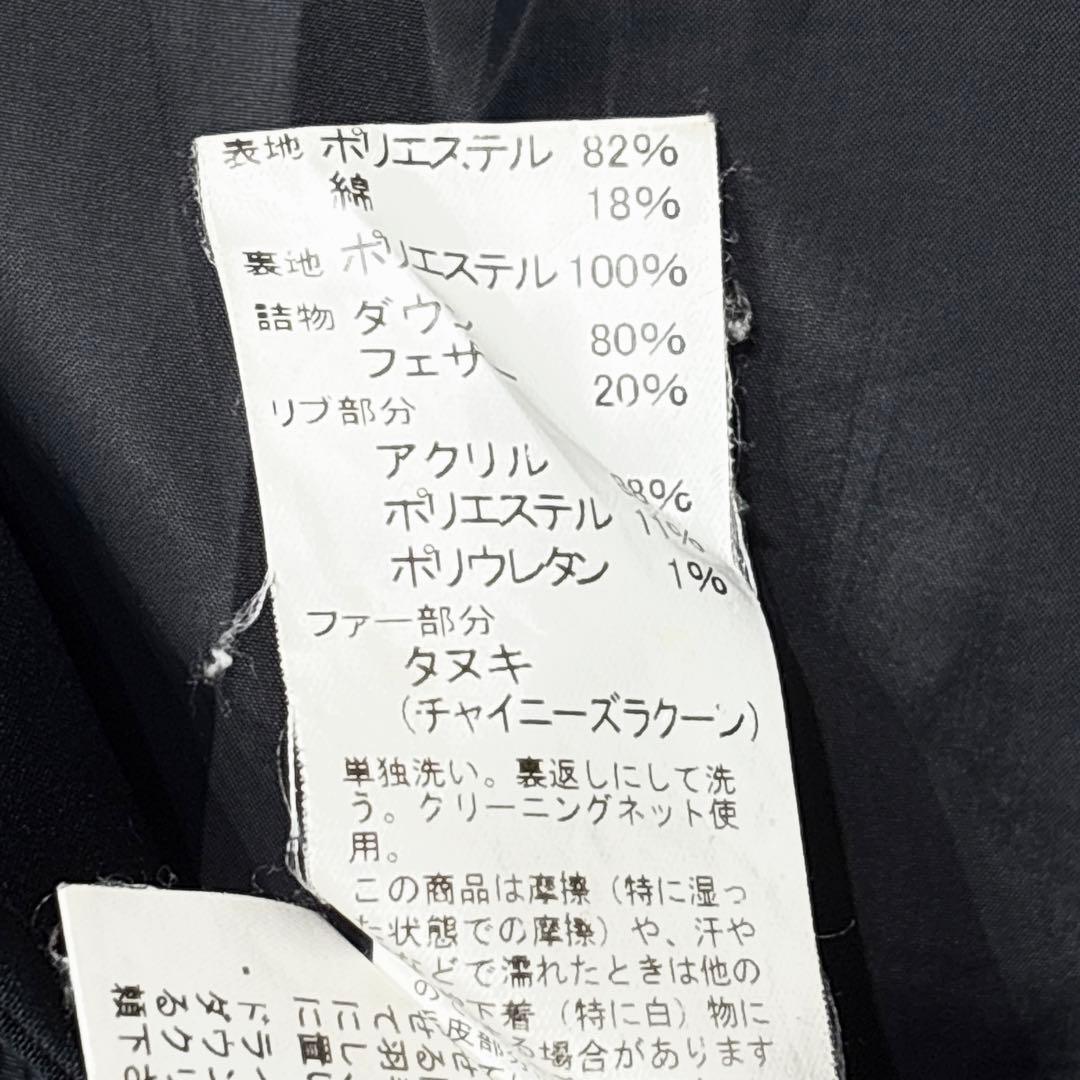 表地 ポリエステル 82%
綿 18%
裏地 ポリエステル 100%
詰物 ダウン 80%
フェザー 20%
リブ部分
アクリル 88%
ポリエステル 11%
ポリウレタン 1%
ファー部分
タヌキ
(チャイニーズラクーン)
単独洗い。裏返しにして洗
う。クリーニングネット使
用。
この商品は摩擦(特に湿っ
た状態での摩擦)や、汗や
などで濡れたときは他の
下着(特に白)物に
場合があります